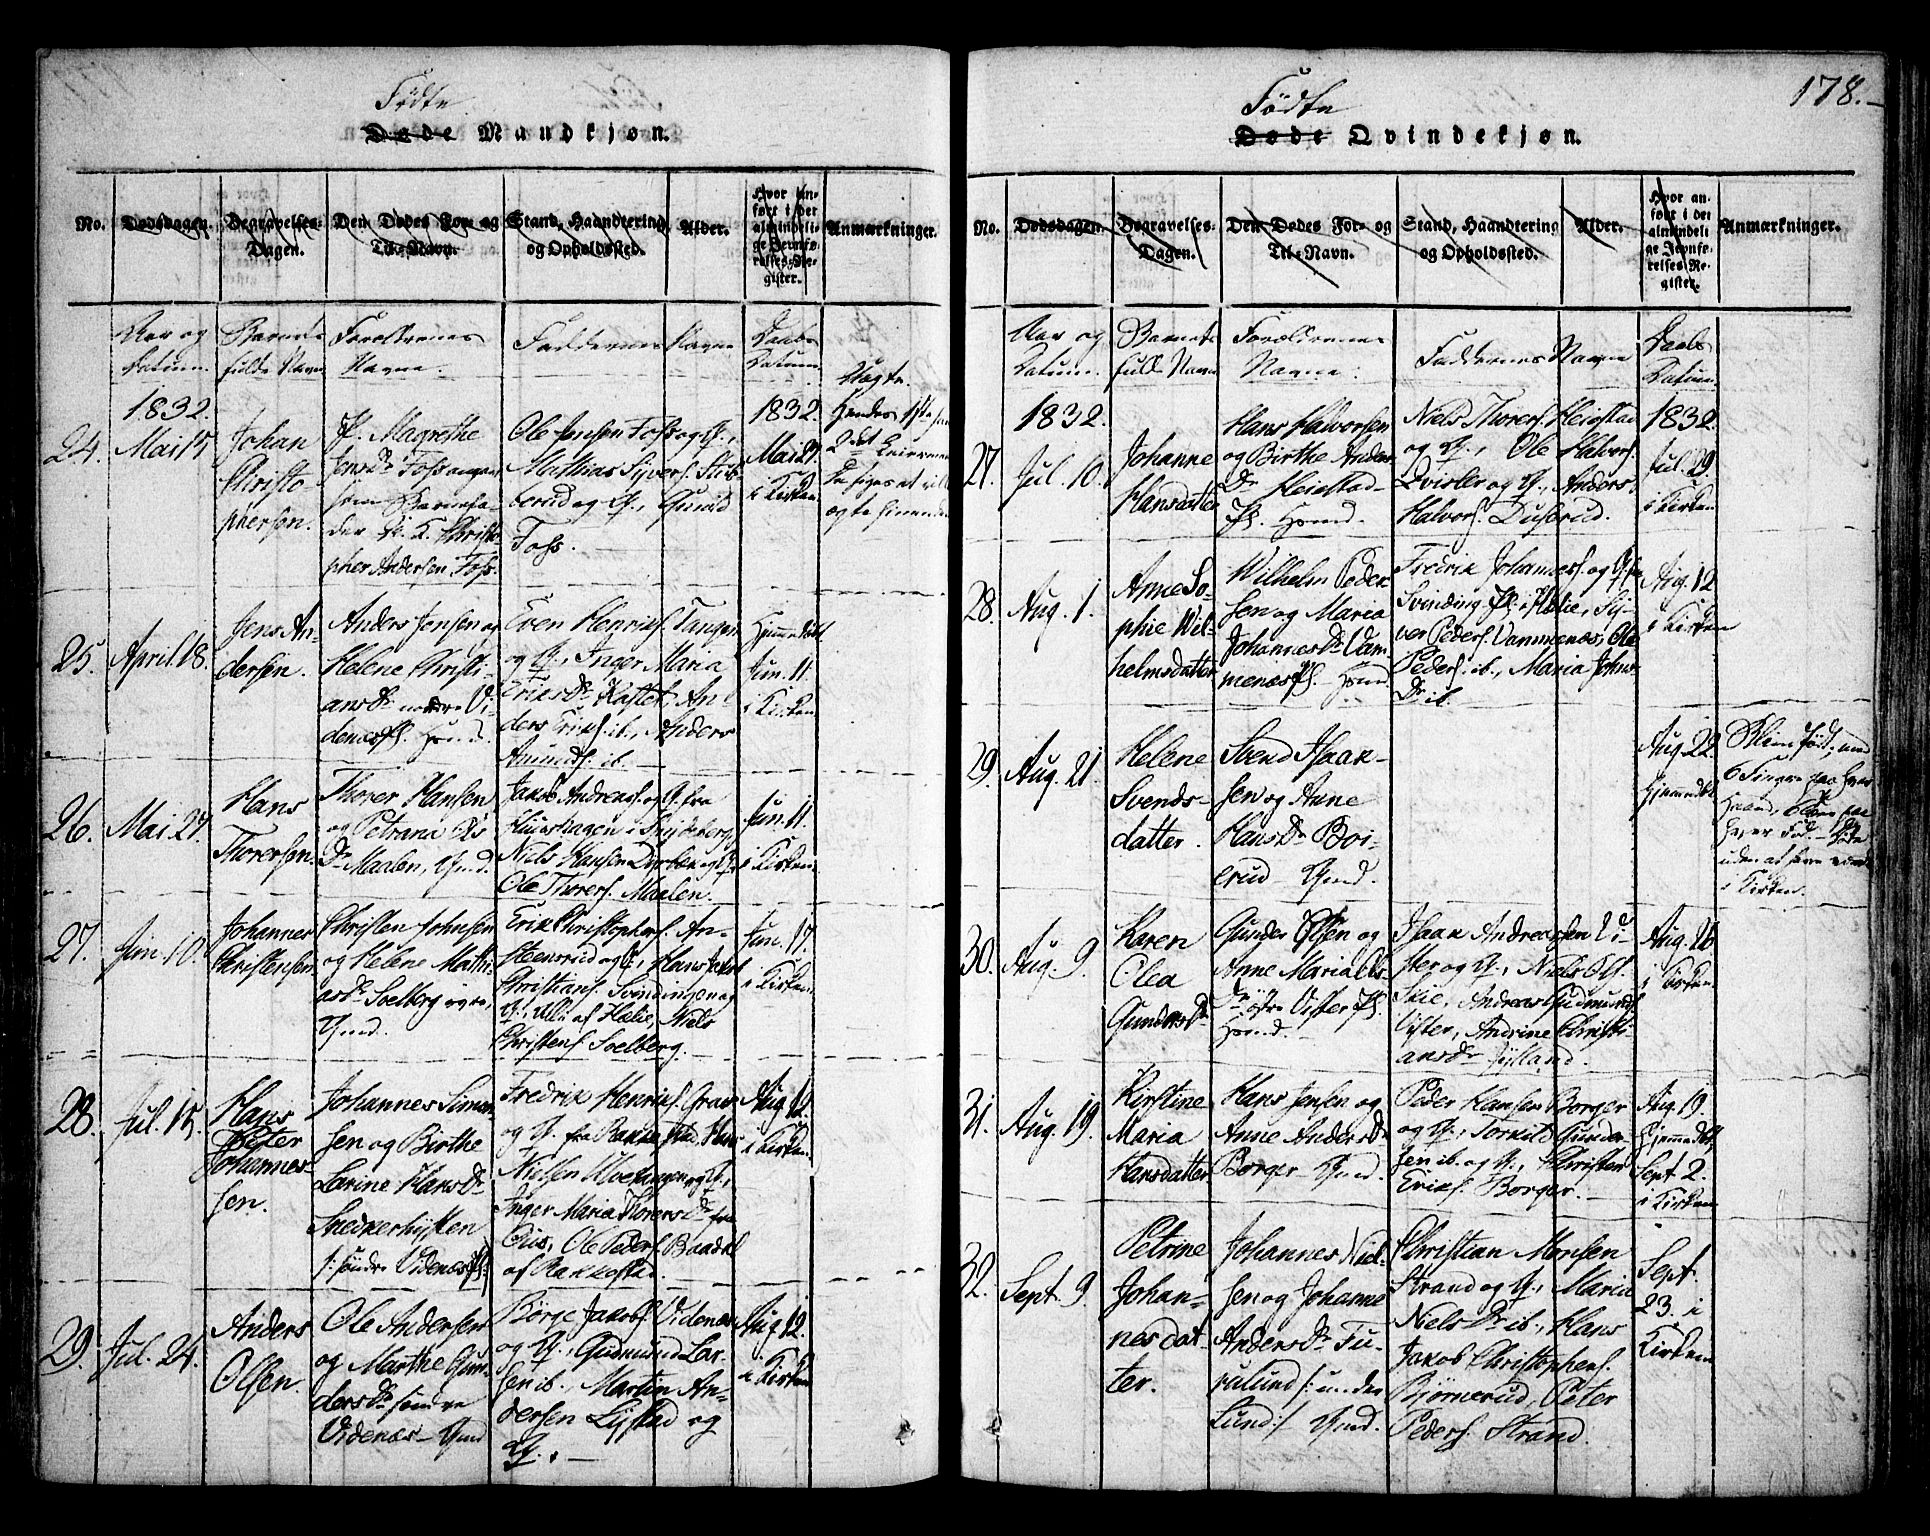 Födte
Døde Mandkjøn.
No.
Dødsdagen.
Begravelses-
Dagen.
Den Dødes For- og
Til-Navn.
Stand, Haandtering
og Opholdssted.
Alder.
Hvor an-
ført i det
almindeli-
ge Jevnfø-
relses-Re-
gister.
Anmærkninger.
Aar og
Datum.
Barnets
fulde Navn
Forældrenes
Navne.
Faddernes Navne
Daabs
Datum
1832.
24.
Mai 15
Johan
Christo-
phersen.
P. Magrethe
Jens D.
som Barnefa-
der
Christo-
pher Andersen Foss.
Ole Jensen Foss og
Mathias Syvers.
og
Foss.
1832.
Mai 27
i Kirken
25.
April 18.
Jens An-
dersen.
Anders Jensen og
Helene Christi-
ans D. nordre Vi-
denæs
Even Henriks. Tangen
og Q., Inger Maria
Eriks D. Kaste, An-
ders Eriks. ib., Anders
Amunds. ib.
Hjemmedøbt
Jun. 11
i Kirken
26.
Mai. 27.
Hans
Thorersen
Thorer Hansen
og Petrana Ols
D. Maalen,
Jakob Andreas. og Q. fra
Niels Hansen
Ole Thorers. Maalen.
Jun. 11.
i Kirken.
27.
Jun. 10.
Johannes
Christensen
Christen Johnsen
og Helene Mathi-
as D. Soelberg
Erik Christophers. An-
Steensrud og Q., Hans Jakob
Christians. Svindingen og
Q., Alle af Halie, Niels
Christens. Soelberg.
Jun. 17.
i Kirken.
28.
Jul. 15.
Hans
Peter
Johannes-
sen.
Johannes Simon
sen og Birthe
Larine Hans D.
Snedkerhytten
/: søndre Videnæs
Fredrik Henriks.
og Q. fra Rakkestad, Hans
Nielsen
Inger Maria Thorers D. fra
Ole Peders.
af Rakkestad.
Aug. 12.
i Kirken.
29.
Jul. 24.
Anders
Olsen.
Ole Andersen
og Marthe Gun-
ders D. søndre
Videnæs
Børge Jakobs. Videnæs
og Q., Gudmund Lar-
sen ib. Martin An-
dersen Lystad og
Q. -
Aug. 12.
i Kirken
178.-
Födte
Døde Qvindekjøn.
No.
Dødsdagen.
Begravelses-
Dagen.
Den Dødes For- og
Til-Navn.
Stand, Haandtering
og Opholdssted.
Alder.
Hvor an-
ført i det
almindeli-
ge Jevnfø-
relses-Re-
gister.
Anmærkninger.
Aar og
Datum.
Barnets
fulde Navn
Forældrenes
Navne.
Faddernes Navne
Daabs
Datum.
1832.
27.
Jul. 10.
Johanne
Hansdatter
Hans Halvorsen
og Birthe Anders
D. Heiestad
Niels Thorers. Heiestad
og Q., Ole Halvors.
Qvisler og Q., Anders
Halvors. Duserud.
1832.
Jul. 29
i Kirken
28.
Aug. 1.
Anne So-
phie Wil-
helmsdatter
Wilhelm Peder
sen og Maria
Johannes D. Vam-
menæs
Fredrik Johannes. og Q. fra
Svinding i Halie, Sy-
ver Peders. Vammenæs, Ole
Peders. ib., Maria Johns
D. ib.
Aug. 12
i Kirken
29.
Aug. 21.
Helene
Svends-
datter.
Svend Isaak-
sen og Anne
Hans D. Boi-
erud
Aug. 22.
Hjemmedøbt
født, med
6 Fingre paa hver
Haand, 6 paa
hver Fod.
uden at have været
i Kirken.
30.
Aug. 9.
Karen
Olea
Gunders D.
Gunder Olsen og
Anne Maria Ols
D. østre Vister
Isaak Andreassen Vi-
ster og Q., Niels Ols.
Skie, Andreas Gudmunds.
Vister, Andrine Christi-
ans D. Jylland.
Aug. 26
i Kirken.
31.
Aug. 19.
Kirstine
Maria
Hansdatter
Hans Jensen og
Anne Anders D.
Borger
Peder Hansen Borger
og Q., Torkild Gunder-
sen ib. og Q., Christen
Eriks. Borger.
Aug. 19.
Hjemmedøbt,
Sept. 2.
i Kirken
32.
Sept. 9.
Petrine
Johan-
nesdat
ter.
Johannes Niel-
sen og Johanne
Anders D. Fu-
rulund /: under
Lund :/
Christian Monsen
Strand og Q., Maria
Niels D. ib., Hans
Jakob Christophers.
Bjørnerud, Peter
Peders. Strand.
Sept.
23. i
Kirken